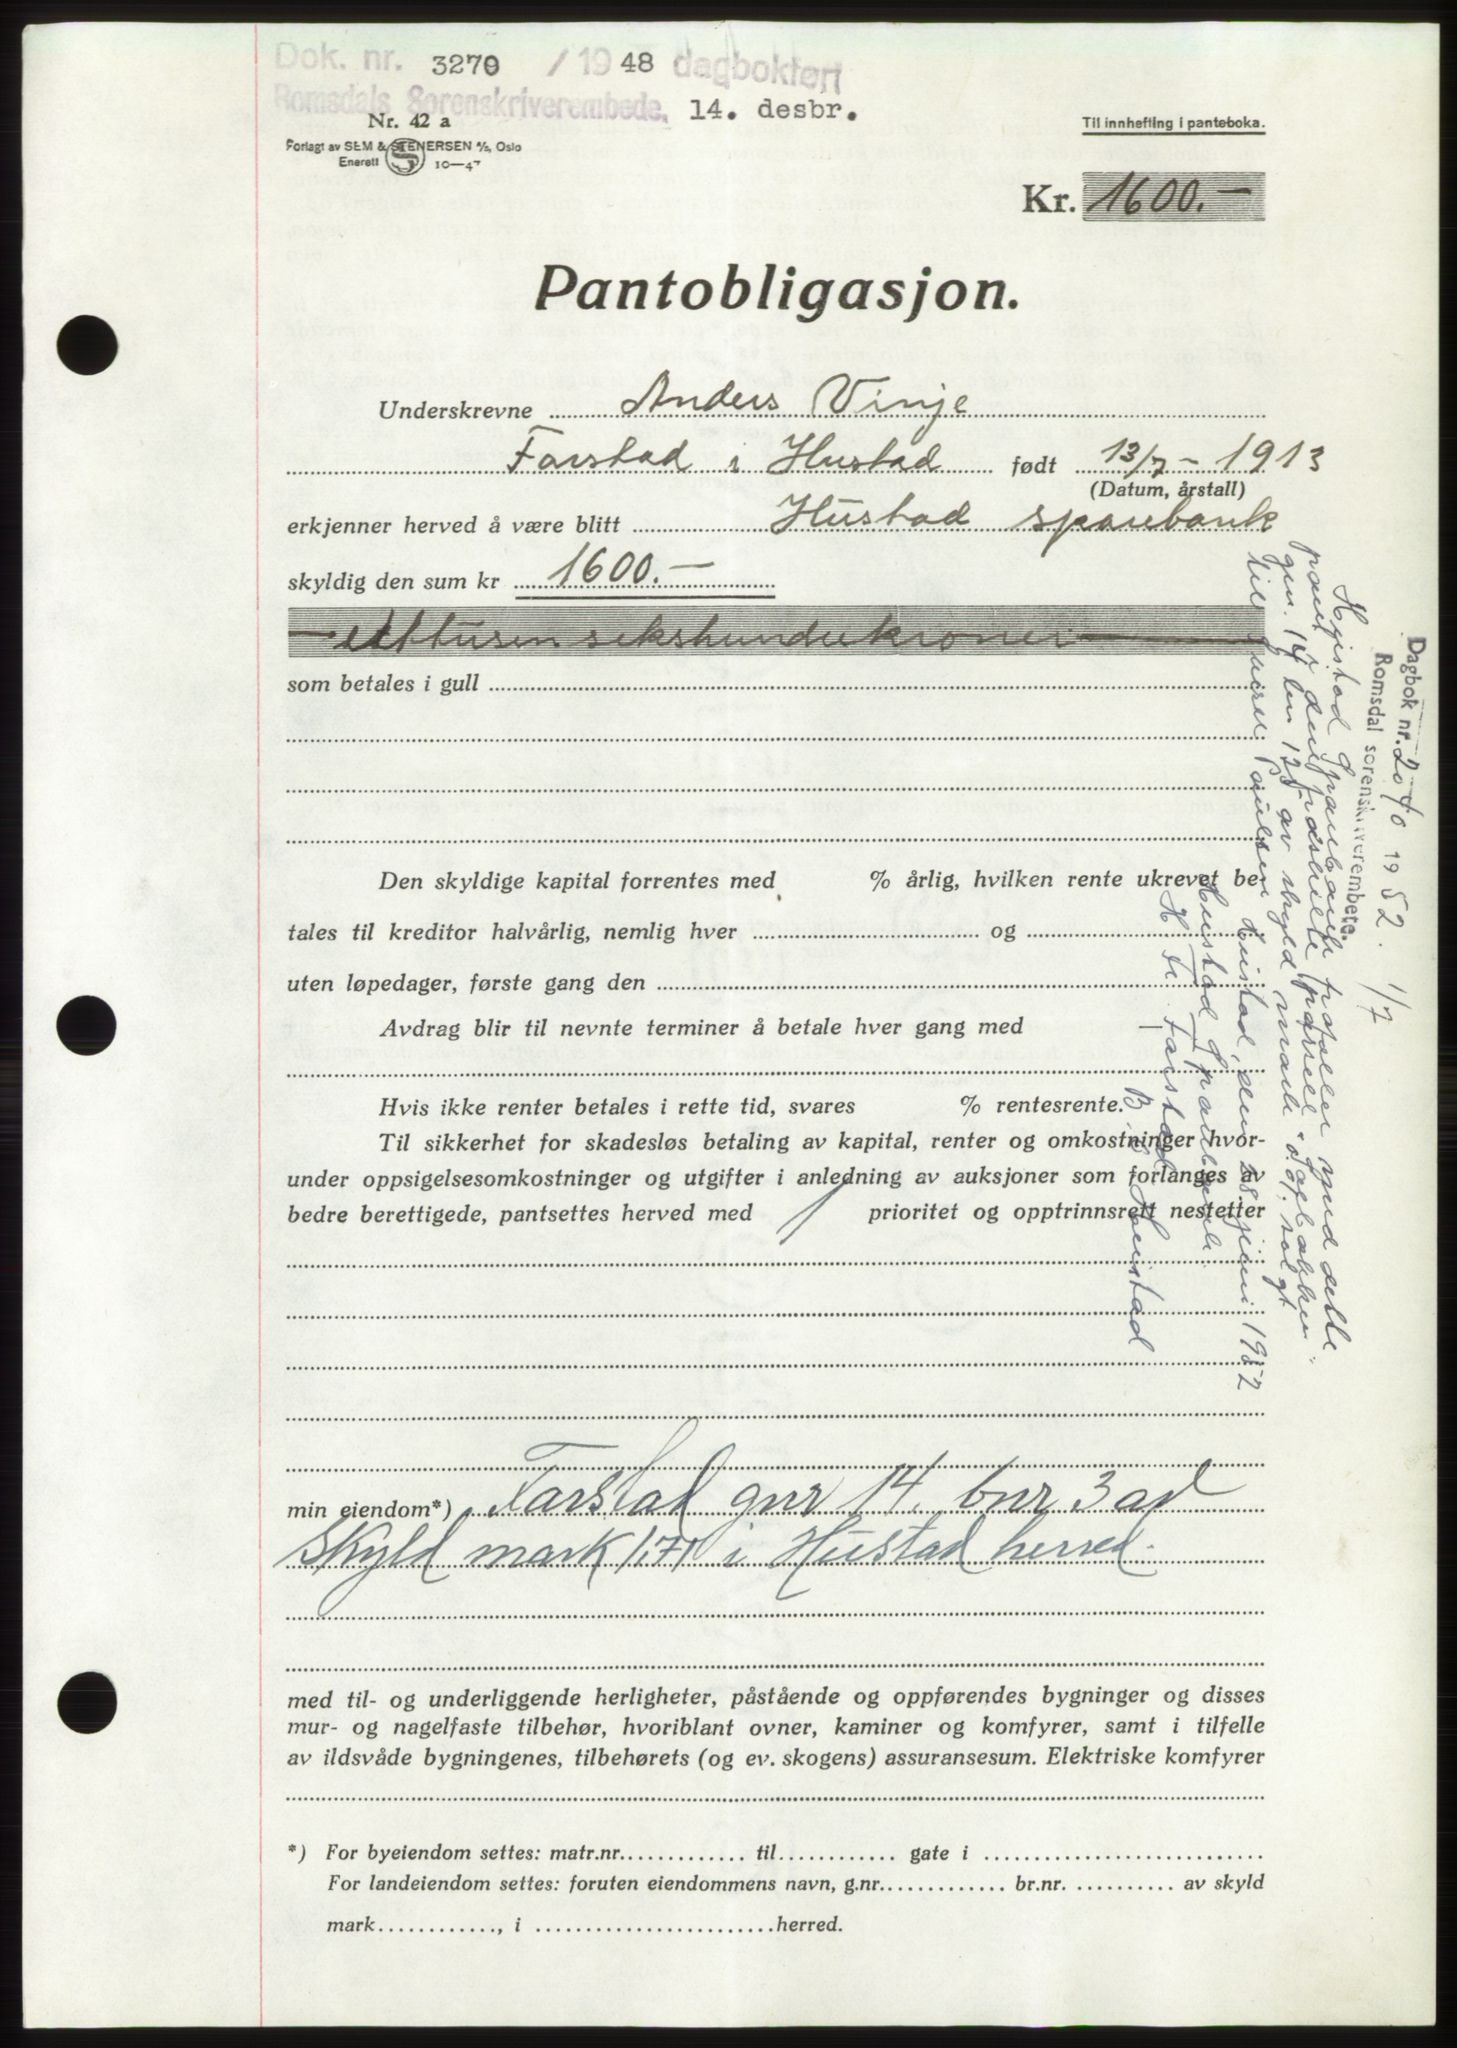 Dok. nr. 3270 / 1948 dagbokført
Romsdals Sorenskriverembede. 14. desbr.
Nr. 42 a
Forlagt av SEM & STENERSEN A/S, Oslo
Enerett 10—47
Til innhefting i panteboka.
Kr. 1600.—
Pantobligasjon.
Underskrevne Anders Vinje
Farstad i Hustad født 13/7 – 1913
(Datum, årstall)
erkjenner herved å være blitt Hustad sparebank
skyldig den sum kr 1600.—
— ettusensekshundrekroner —
som betales i gull
Den skyldige kapital forrentes med % årlig, hvilken rente ukrevet be-
tales til kreditor halvårlig, nemlig hver og
uten løpedager, første gang den
Avdrag blir til nevnte terminer å betale hver gang med
Hvis ikke renter betales i rette tid, svares % rentesrente.
Til sikkerhet for skadesløs betaling av kapital, renter og omkostninger hvor-
under oppsigelsesomkostninger og utgifter i anledning av auksjoner som forlanges av
bedre berettigede, pantsettes herved med 1 prioritet og opptrinnsrett nestetter
min eiendom*) Farstad gnr 14. bnr 3 ad
Skyld mark 1,71 i Hustad herred.
med til- og underliggende herligheter, påstående og oppførendes bygninger og disses
mur- og nagelfaste tilbehør, hvoriblant ovner, kaminer og komfyrer, samt i tilfelle
av ildsvåde bygningenes, tilbehørets (og ev. skogens) assuransesum. Elektriske komfyrer
*) For byeiendom settes: matr.nr. til gate i
For landeiendom settes: foruten eiendommens navn, g.nr. br.nr. av skyld
mark , i herred.
Dagbok nr. 2040 1952. 1/7
Romsdal sorenskriverembete.
Hustad Sparebank frafaller med dette
pant i den fraskilte parsell
gnr. 14 bnr 125 av skyld mark solgt
til Paulsen
Hustad, den 28 juni 1952
Hustad Sparebank
H. Farstad
B. Hustad